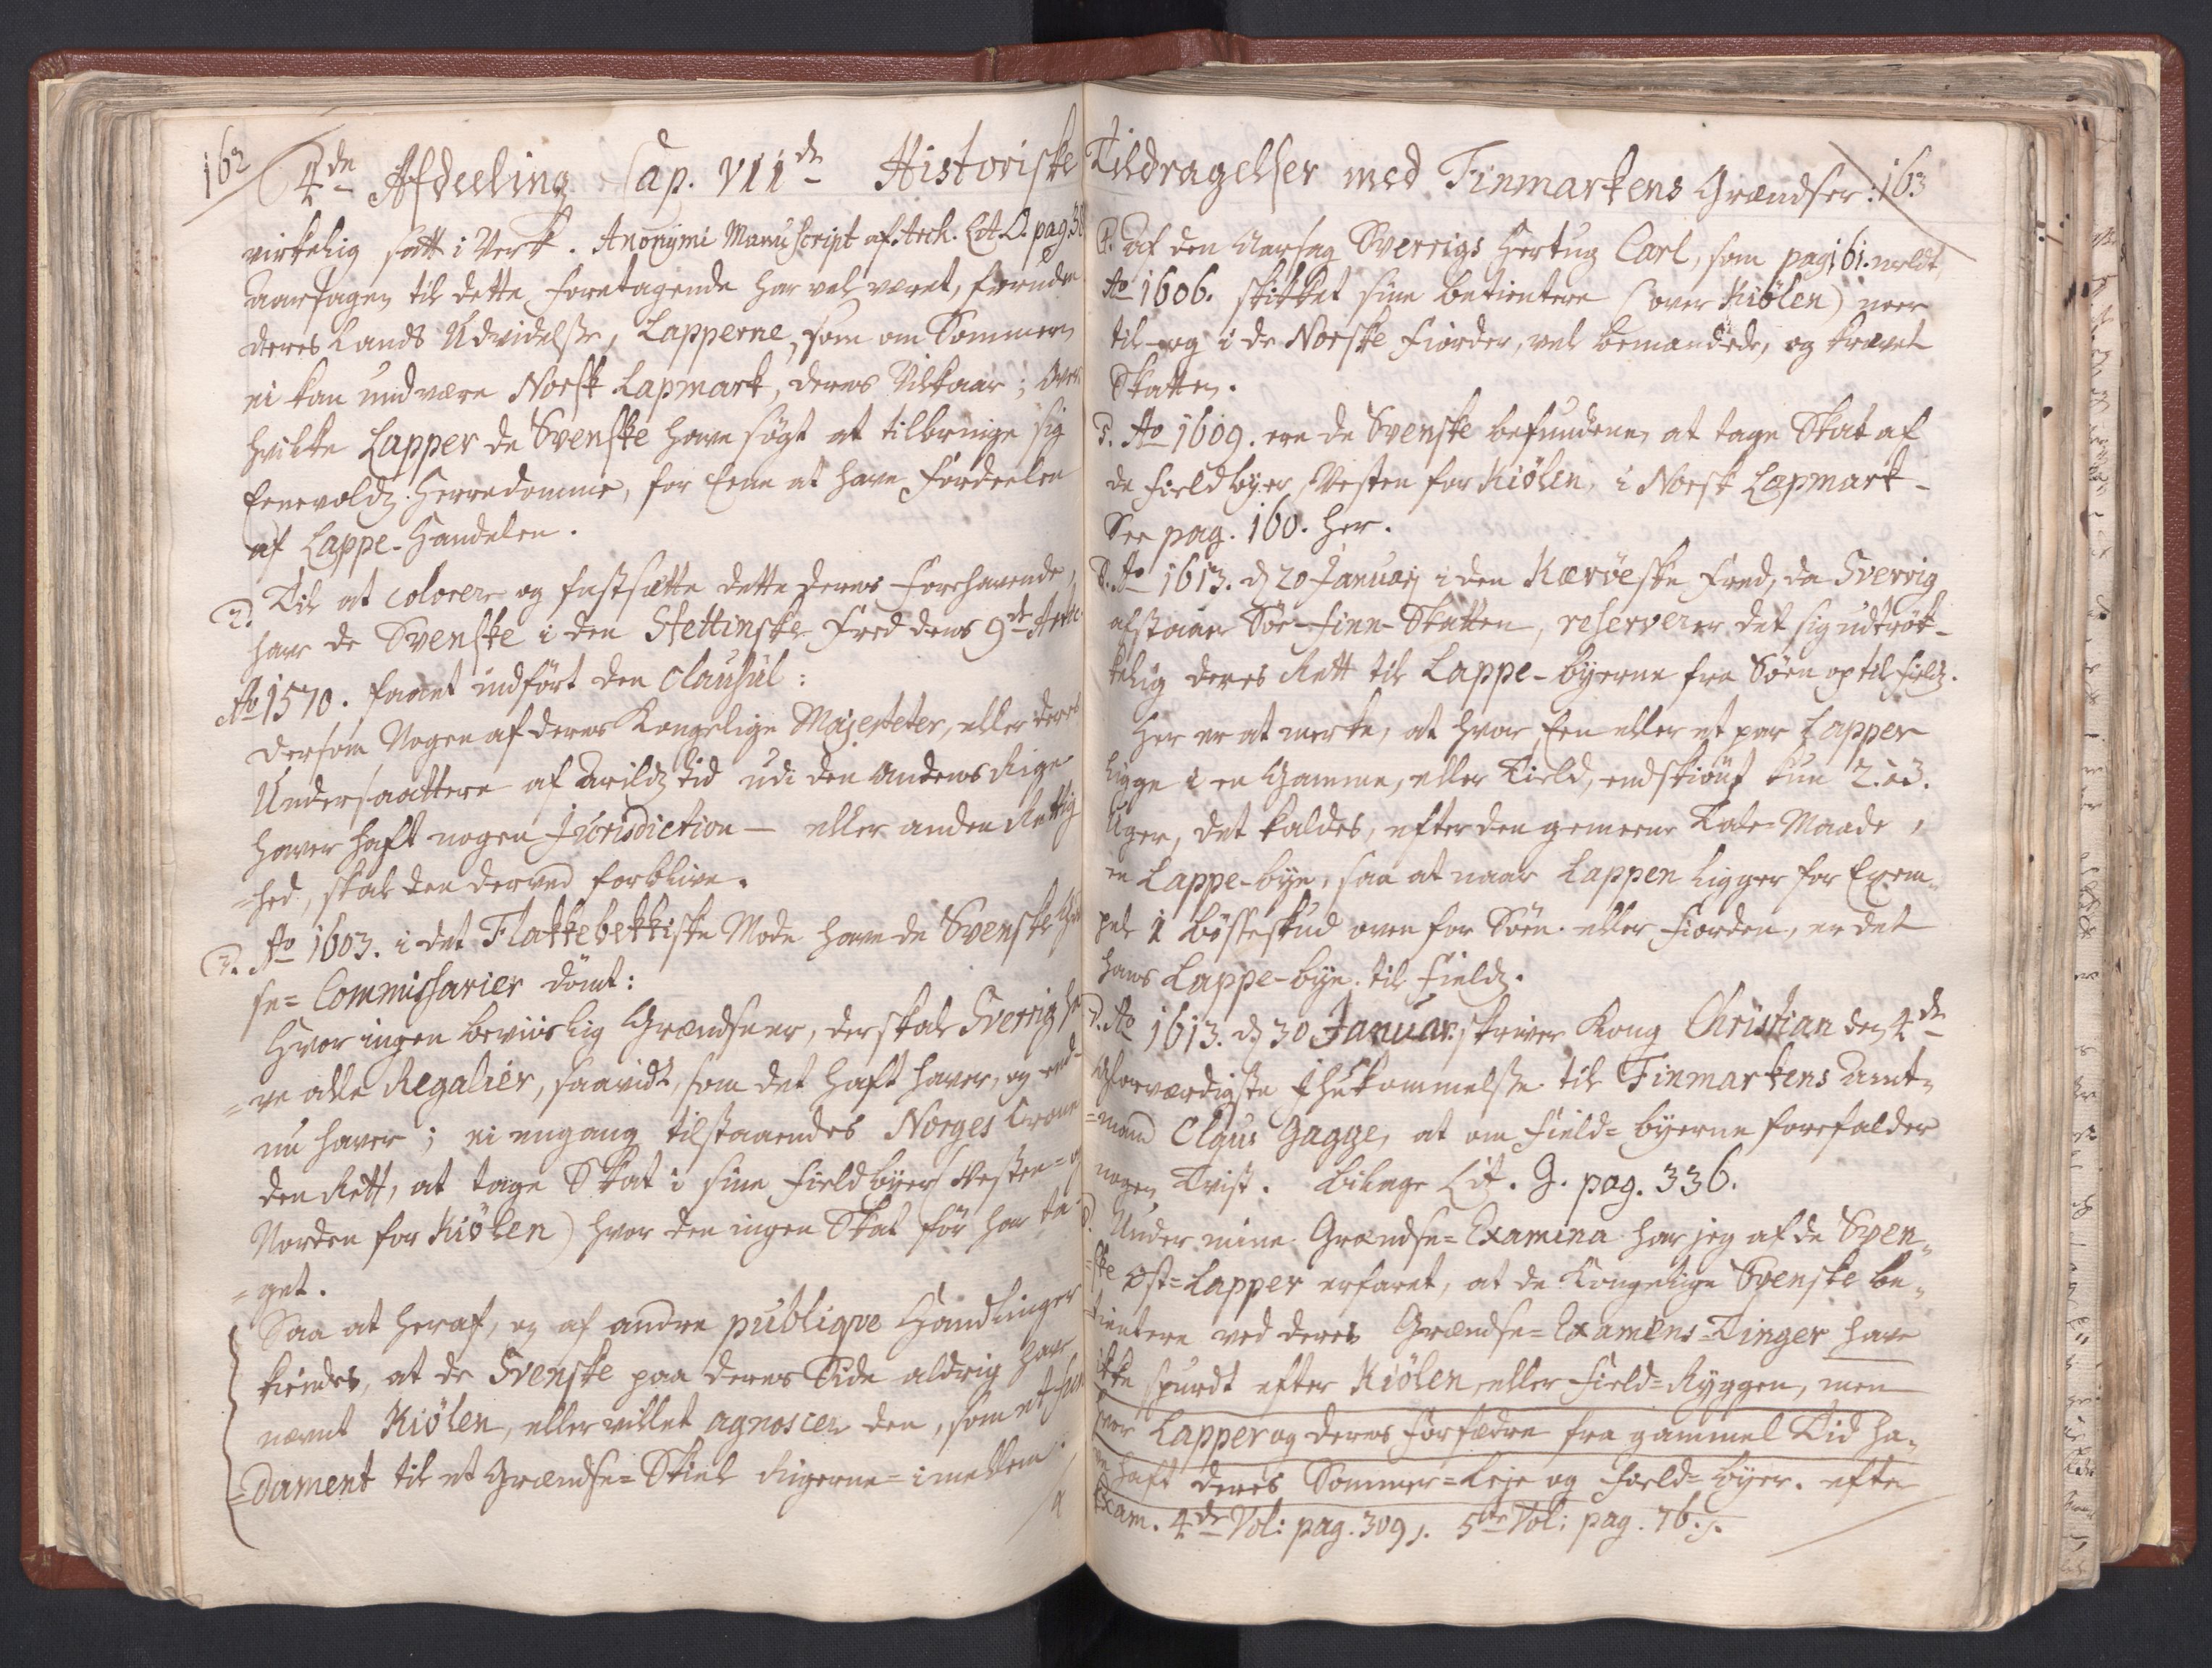 162
4de Afdeeling Cap. VIIde Historiske
virkelig satt i Verk. Anonymi Manuscript af Arch. Lit. O. pag. 38
Aarsagen til dette foretagende har vel været, foruden
deres Lands Udvidelse, Lapperne, som om Sommeren
ei kan undvære Norsk Lapmark, deres Vilkaar; over
hvilke Lapper de Svenske have søgt at tilbringe sig
Eenevoldz Herredomme, for Eene at have Fordeelen
af Lappe-Handelen.
2. Til at colorere og fastsætte dette deres Forehavende,
har de Svenske i den Stettinske Fred dens 9de Artic.
Ao 1570. faaet indført den Clausul:
Dersom Nogen af deres Kongelige Majesteter, eller deres
Undersaattere af Arildz tid udi den Andens Rige
haver haft nogen Jurisdiction - eller anden Rettig
=hed, skal den derved forblive.
3. Ao 1603. i det Flakkebekkiske Mode have de Svenske Græn
se= Commissarier dømt:
Hvor ingen beviislig Grændse er, der skal Sverrig ha
=ve alle Regalier, saavidt, som det haft haver, og end=
nu haver; ei engang tilstaaendes Norges Crone
den Rett, at tage Skat i sine Fieldbyer (Vesten= og
Norden for Kiølen) hvor den ingen Skat før har ta=
=get.
Saa at heraf, og af andre publiqve Handlinger
kiendes, at de Svenske paa deres Side aldrig have
nævnt Kiølen, eller villet agnoscere den, som et fun
=dament til et Grændse=Skiel Rigerne= imellem.
4
Tildragelser med Finmarkens Grændser: 163
4. Af den Aarsag Sverrigs Hertug Carl, som pag. 161. meldt,
Ao 1606. skikket sine betientere (over Kiølen) neer
til- og i de Norske Fiorder, vel bemandede, og krævet
Skatten.
5. Ao 1609. ere de Svenske befundene, at tage Skat af
de Fieldbyer, Vesten for Kiølen, i Norsk Lapmark-
See pag. 160. her.
6. Ao 1613. d. 20 Januarij i den Kærøeske Fred, da Sverrig
afstaaer Søe-Finn-Skatten, reserverer det sig udtrøk-
kelig deres Rett til Lappe-byerne fra Søen op til Fieldz.
Her er at merke, at hvor Een eller et par Lapper
ligge i en Gamme, eller Tield, endskiønt kun 2. à 3.
Uger, det kaldes, efter den gemeene Tale=Maade,
en Lappe-bye, saa at naar Lappen ligger for Exem=
pel 1 bøsseskud oven for Søen eller Fiorden, er det
hans Lappe-bye til Fieldz.
7. Ao 1613. d. 30 Januar. skriver Kong Christian den 4de
høylovværdigste Ihukommelse til Finmarkens Amt=
=mand Claus Gagge, at om Field=byerne forefalder
nogen Tvist. Bilage Lit. G. pag. 336.
8. Under mine Grændse=Examina har jeg af de Sven=
=ske Øst=Lapper erfaret, at de Kongelige Svenske be=
=tientere ved deres Grændse=Examens=Tinger have
ikke spurdt efter Kiølen, eller Field=Ryggen, men
hvor Lapper og deres Forfædre fra gammel Tid ha=
ve haft deres Sommer=Leje og Field=byer. efter
Exam. 4de Vol: pag. 309). 5te Vol: pag. 76.).